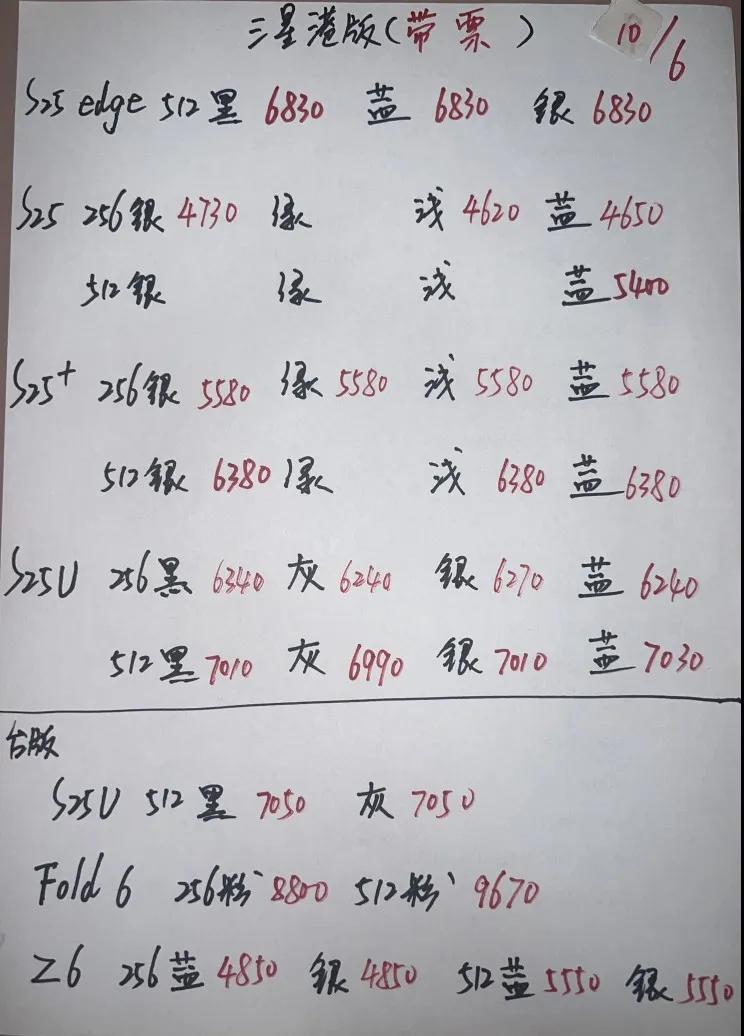 三星港版(带票) 10/6
S25 edge 512黑 6830 蓝 6830 银 6830
S25 256银 4730 绿 浅 4620 蓝 4650
512银 绿 浅 蓝 5400
S25+ 256银 5580 绿 5580 浅 5580 蓝 5580
512银 6380 绿 浅 6380 蓝 6380
S25U 256黑 6340 灰 6240 银 6270 蓝 6240
512黑 7010 灰 6990 银 7010 蓝 7030
台版
S25U 512黑 7050 灰 7050
Fold 6 256粉 8800 512粉 9670
Z6 256蓝 4850 银 4850 512蓝 5550 银 5550